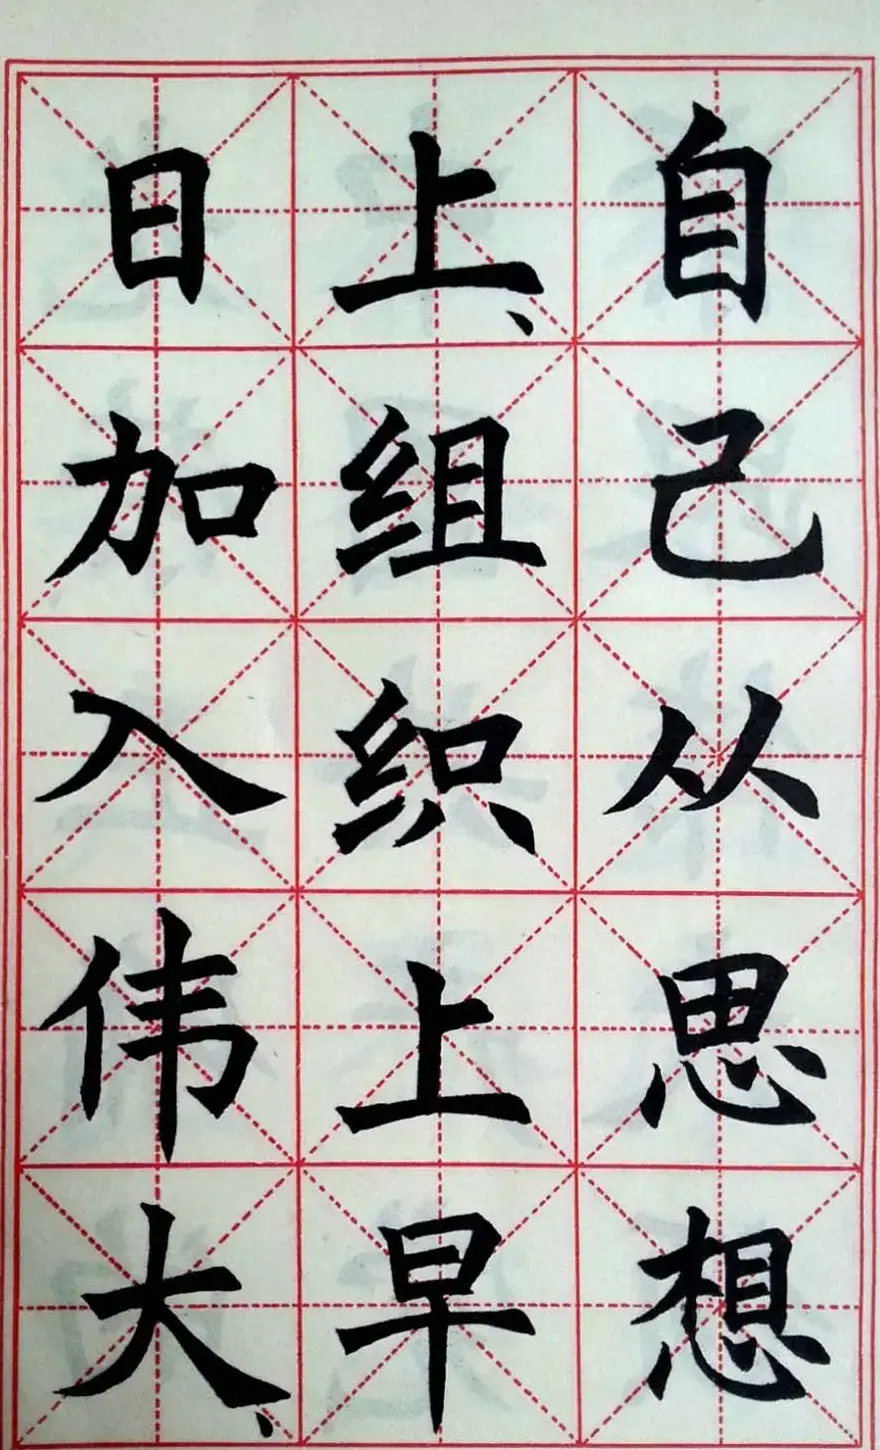 自己从思想
上、组织上早
日加入伟大、